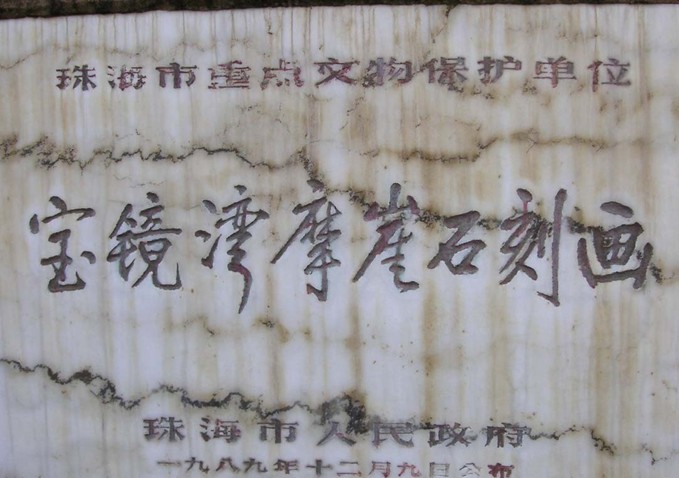 珠海市重点文物保护单位
宝镜湾摩崖石刻画
珠海市人民政府
一九八九年十二月九日公布